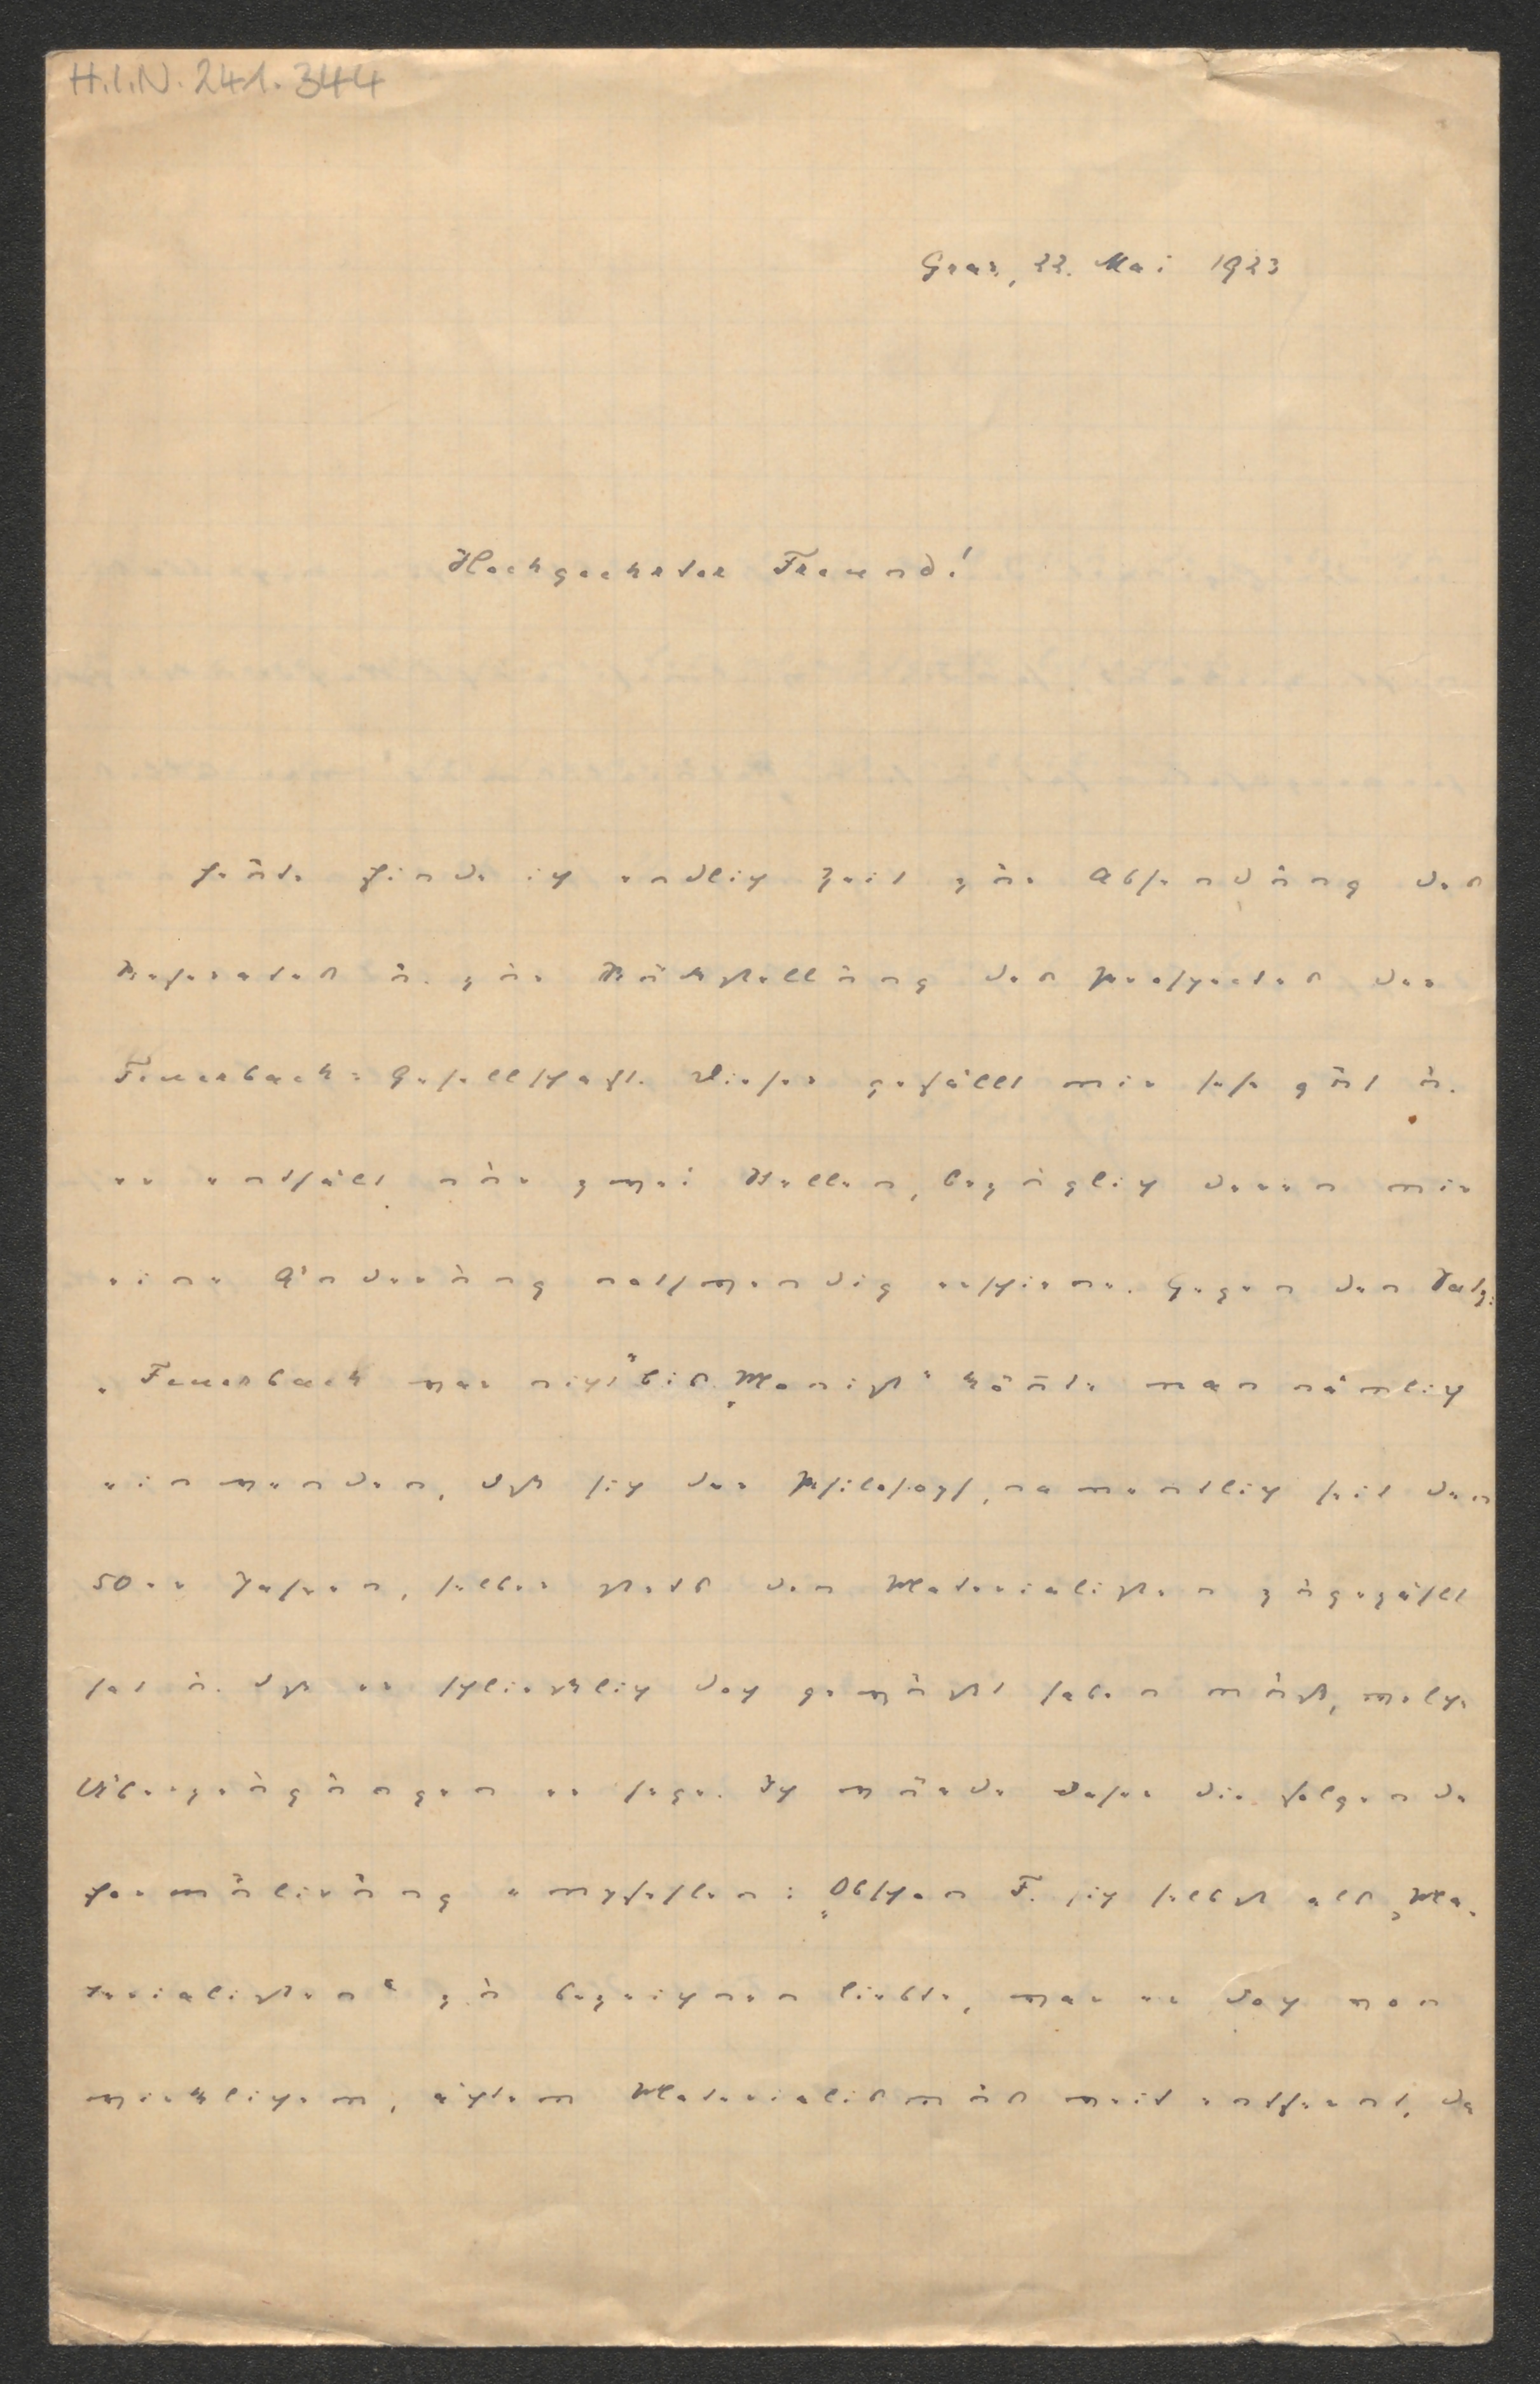 H.I.N. 241.344
Graz, 22. Mai 1923
Hochgeehrter Freund!
Heute finde ich endlich Zeit zur Absendung des
Referates u. zur Rückstellung des Prospectes der
Feuerbach-Gesellschaft. Dieser gefällt mir sehr gut u.
er enthält nur zwei Stellen, bezüglich deren mir
eine Änderung nothwendig erschiene. Gegen den Satz:
„Feuerbach war nicht bloß „Monist“ könnte man nämlich
einwenden, daß sich der Philosoph, namentlich seit den
50er Jahren, selber stets den Materialisten zugezählt
hat u. daß er schließlich doch gewußt haben muß, welche
Überzeugungen er hege. Ich würde daher die folgende
Formulierung empfehlen: „Obschon F. sich selbst als „Ma-
terialisten“ zu bezeichnen liebte, war er doch von
wirklichem, echtem Materialismus weit entfernt, da